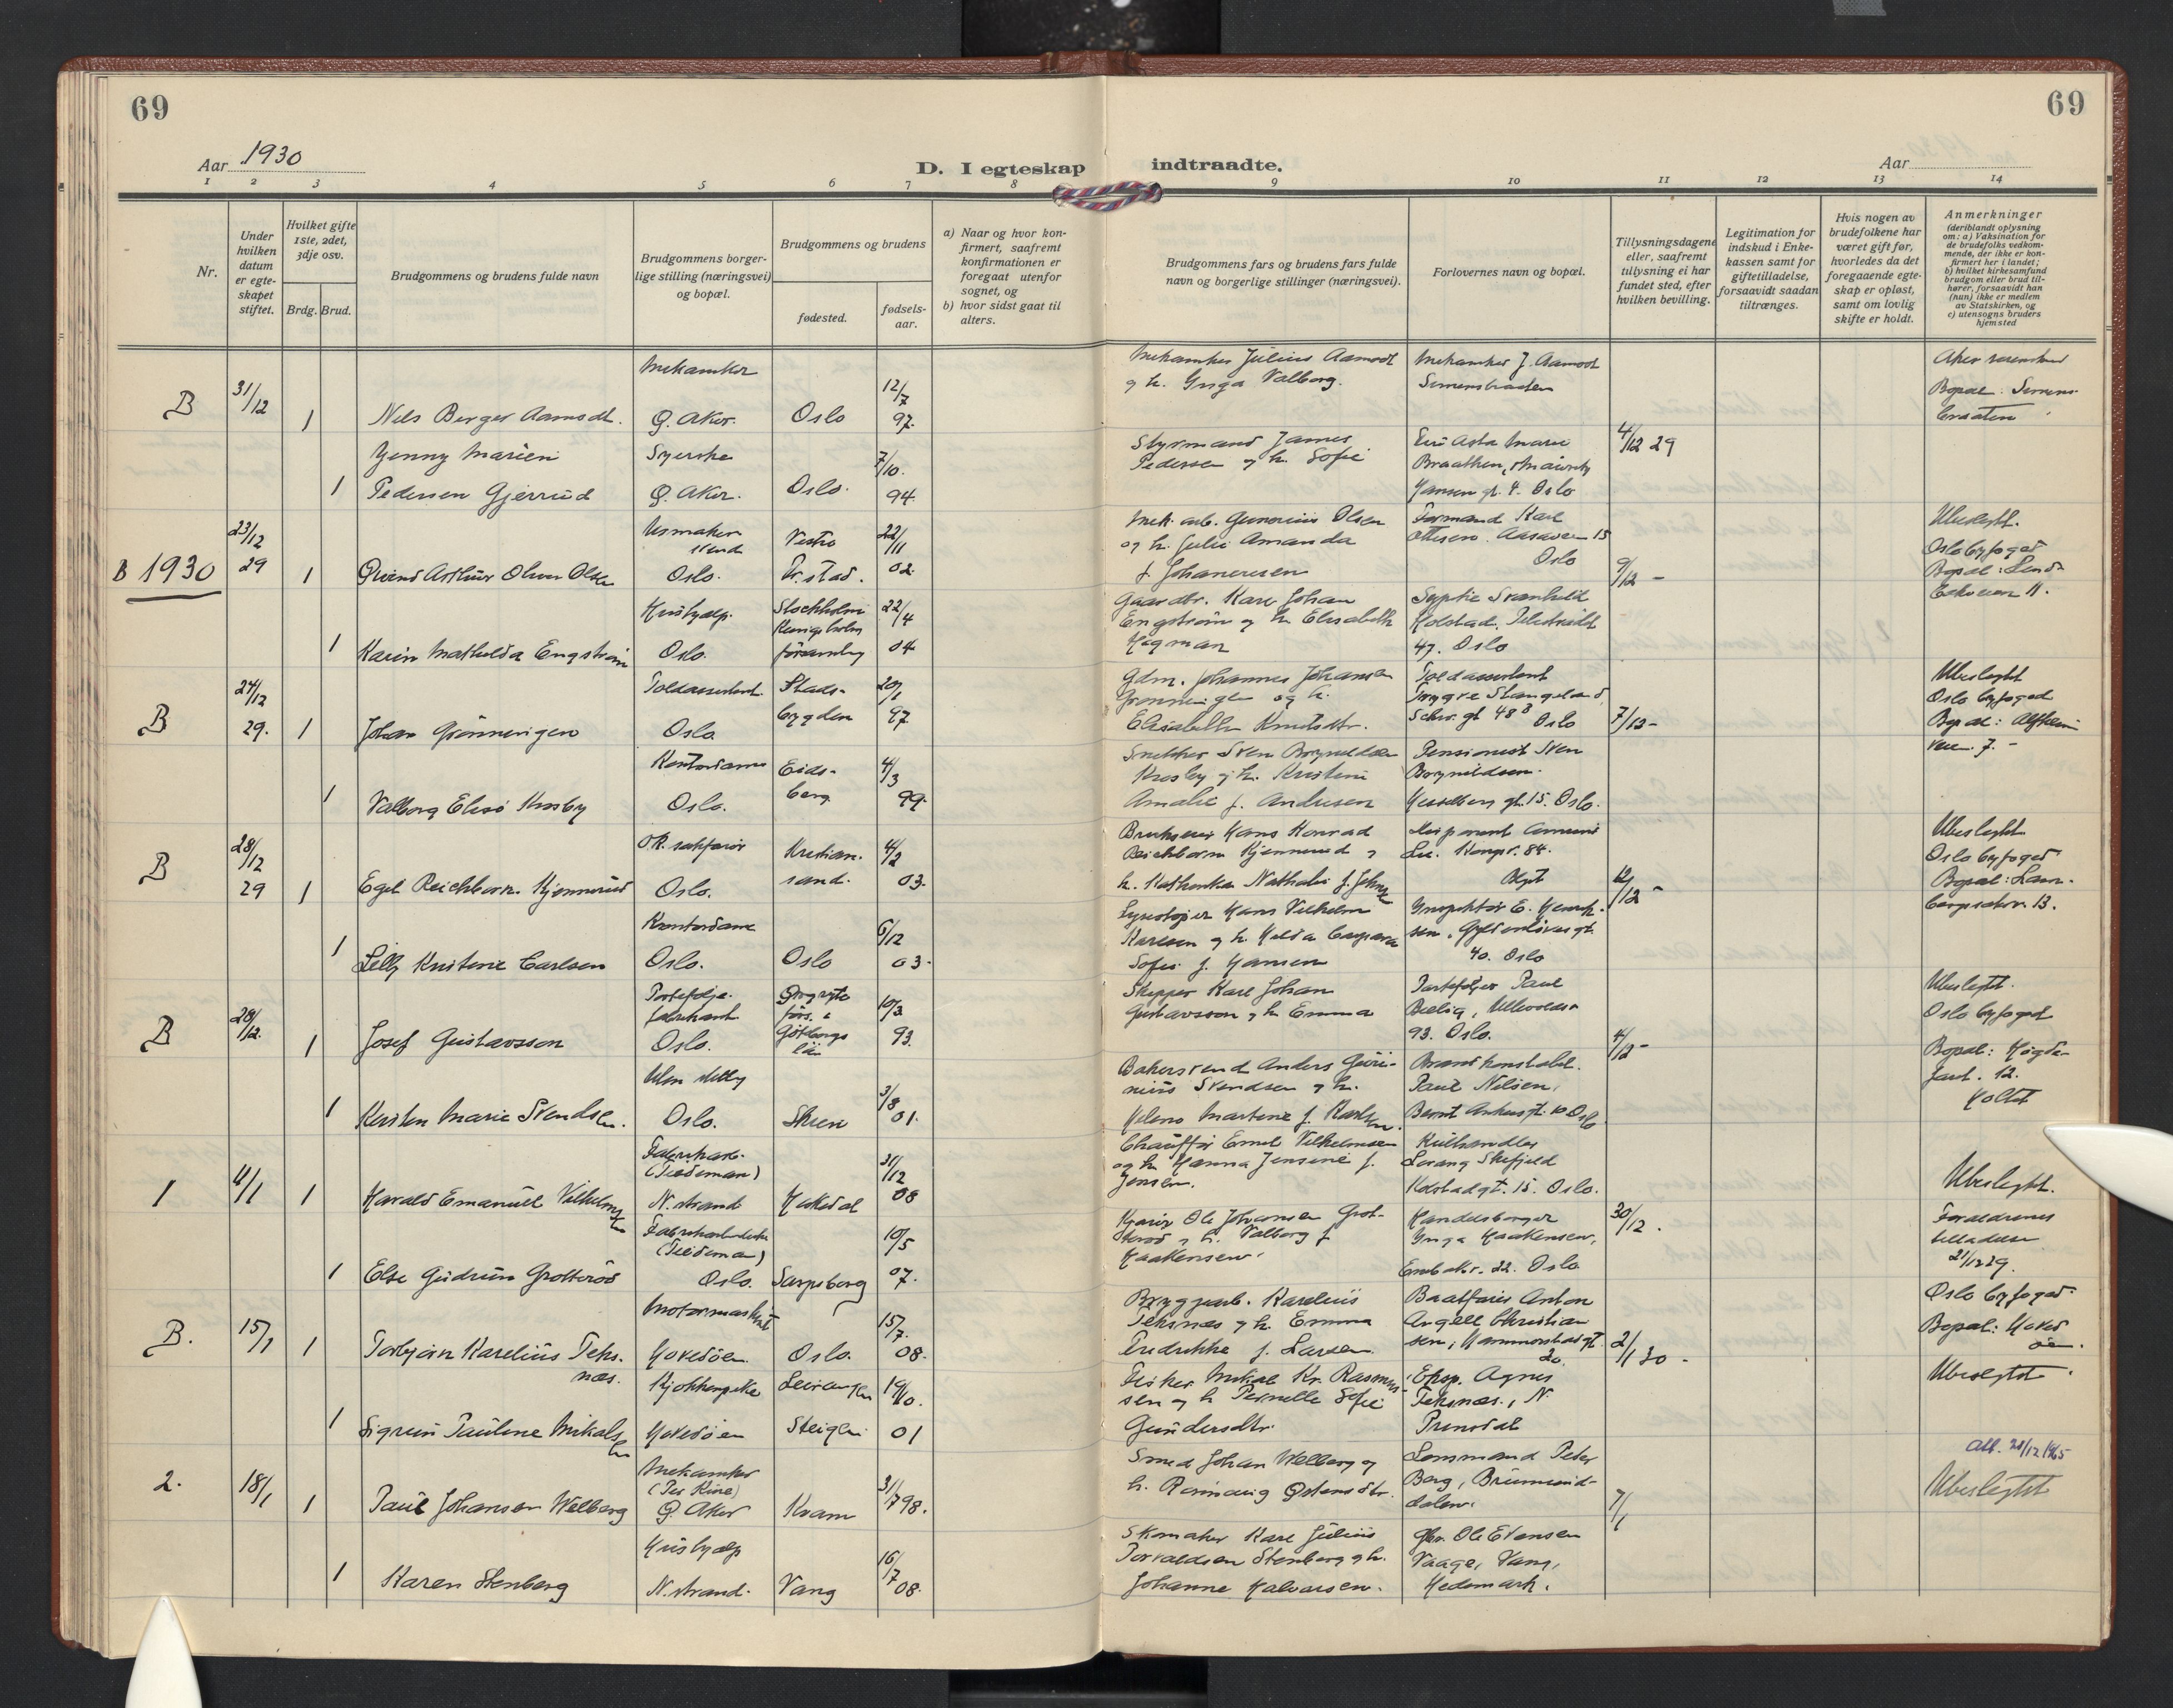 69
69
Aar 1930
D. I egteskap indtraadte.
Aar
1 2 3 4 5 6 7 8 9 10 11 12 13 14
Nr.
Under hvilken datum er egteskapet stiftet.
Hvilket gifte 1ste, 2det, 3dje osv.
Brdg. Brud.
Brudgommens og brudens fulde navn
Brudgommens borgerlige stilling (næringsvei) og bopæl.
Brudgommens og brudens
fødested.
fødselsaar.
a) Naar og hvor konfirmert, saafremt konfirmationen er foregaat utenfor sognet, og
b) hvor sidst gaat til alters.
Brudgommens fars og brudens fars fulde navn og borgerlige stillinger (næringsvei).
Forlovernes navn og bopæl.
Tillysningsdagene eller, saafremt tillysning ei har fundet sted, efter hvilken bevilling.
Legitimation for indskud i Enkekassen samt for giftetilladelse, forsaavidt saadan tiltrænges.
Hvis nogen av brudefolkene har været gift før, hvorledes da det foregaaende egteskap er opløst, samt om lovlig skifte er holdt.
Anmerkninger (deriblandt oplysning om: a) Vaksination for de brudefolks vedkommende, der ikke er konfirmert her i landet; b) hvilket kirkesamfund brudgom eller brud tilhører, forsaavidt han (hun) ikke er medlem av Statskirken, og c) utensogns bruders hjemsted
B 31/12 1 Nils Berger Aamodt. Mekaniker Ø. Aker. Oslo 12/7 97.
Mekaniker Julius Aamodt og h. Inga Valborg.
Mekaniker J. Aamodt Simensbraaten
Bopæl: Simensbraaten
1 Jenny Marien Pedersen Gjerrud Syerske Ø. Aker. Oslo. 7/10. 94.
Styrmand James Pedersen og h. Sofie
Asta Marie Braathen,
Jansen gt. 4. Oslo
4/12 29
B 1930 23/12 29 1 Øivind Arthur Olsen Urmakersvend Oslo. Fr.stad. 22/11 02.
Mek. arb. Olsen og h. Julie Amanda f. Johannesen
Formand Karl Ottesen. Aasaveien 15 Oslo
9/12 -
Ubeslegtet.
Oslo byfoged
Bopæl:
1 Karin Mathilda Engström Hushjelp. Oslo. Stockholm Kungsholm församling 22/4 04
Gaardbr. Karl Johan Engström og h. Elisabeth Hagman
Svanhild Kolstad. 47. Oslo
B 24/12 29. 1 Johan Grønningen Toldassistent. Oslo Stadsbygden 20/1 97
Gdm. Johannes Johansen Grønningen og h. Elisabeth Knutsdtr.
Toldassistent Trygve Stangeland, Schw. gt 48 B Oslo
7/12 -
Ubeslegtet
Oslo byfoged
Bopæl:
veien 7. -
1 Valborg Elise Krosby Kontordame Oslo. Eidsberg 4/3 99.
Snekker Sven Brynildsen Krosby og h. Kristine Amalie f. Andresen
Pensionist Sven Brynildsen. Hesselberg gt. 15. Oslo.
B 28/12 29 1 Egil Reichborn-Kjennerud O.R. sakfører Oslo. Kristiansand. 4/2 03.
Brukseier Hans Konrad Reichborn Kjennerud og h. Kathinka Nathalie f. Johnsen
12/12 -
Ubeslegtet
Oslo byfoged
Bopæl:
1 Lilly Kristine Carlsen Kontordame Oslo. Oslo 6/12 03.
Hans Vilhelm Karlsen og h. Hulda Caspara Sofie f. Hansen
Inspektør E. Henriksen. Gyldenløves gt. 40. Oslo
B 28/12. 1 Josef Gustavsson Portefølje-fabrikant Oslo. Göteborgs län 10/3 93.
Skipper Karl Johan Gustavsson og h. Emma
Portefølje Paul 93. Oslo.
4/12 -
Ubeslegtet.
Oslo byfoged
Bopæl:
1 Kirsten Marie Svendsen. Uten stilling Oslo. Skien 3/8 01.
Bakersvend Anders Svendsen og h. Helene Martine f. Karlsen.
Brandkonstabel. Paul Nilsen, Bernt Ankers gt. 10 Oslo
1 4/1 1 Harald Emanuel Vilhelmsen Fabrikarb. (Tiedeman) N. strand Hakedal 31/12 08
Chauffør Emil Vilhelmsen og h. Hanna Jensine f. Jensen.
Kulhandler Lorang Skifjeld Kolstadgt. 15. Oslo.
30/12.
Ubeslegtet.
Forældrenes tilladelse 21/12 29.
1 Else Gudrun Grotterød Fabrikarbeiderske (Tiedeman) Oslo. Sarpsborg 10/5 07.
Ole Johansen Grotterød og h. Valborg f. Haakensen.
Handelsborger Inga Haakensen, 22. Oslo
B. 15/1 1 Torbjørn Karelius Teksnæs. Motormaskinist Hovedøen. Oslo. 15/7. 08.
Bryggearb. Karelius Teksnæs og h. Emma Fredrikke f. Larsen
Baatfører Anton Angell Christiansen, Hammerstadgt. 20.
2/1 30 -
Oslo byfoged.
Bopæl: Hovedøen.
Ubeslegtet.
1 Sigrun Pauline Mikalsen Kjøkkenpike Hovedøen Steigen. 19/10. 01
Fisker Mikal Kr. Rasmussen og h Pernille Sofie Gundersdtr.
Eksp. Agnes Teksnæs., N. Prinsdal
2. 18/1 1 Paul Johansen Welberg Mekaniker (Per Kure) Ø. Aker Kvam 31/7 98.
Smed Johan Welberg og h. Rønnaug Østensdtr.
Lensmand Peter Berg, Brumunddalen.
7/1
Att. 28/12 1965
Ubeslegtet
1 Karen Stenberg Hushjelp N. strand. Vang 16/7 08.
Skomaker Karl Julius Torvaldsen Stenberg og h. Johanne Halvorsen.
Gbr. Ole Evensen Vaage, Vang, Hedemark.